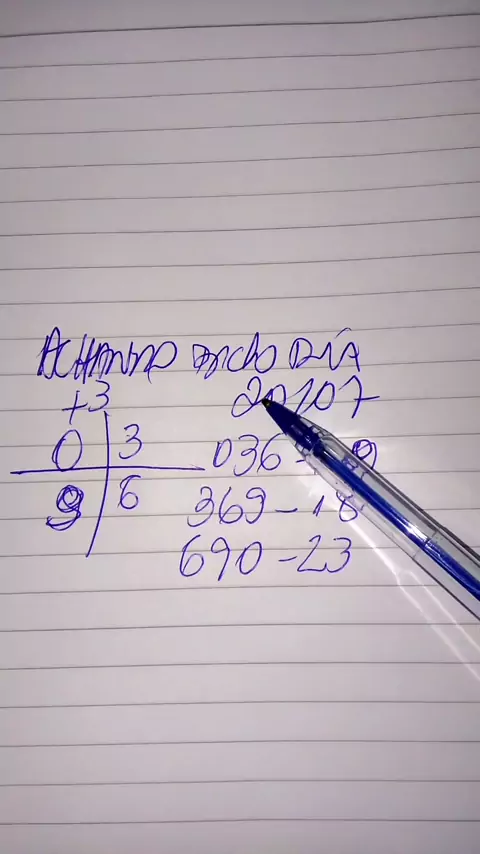 ACHANDO BICHO DIA
+3 20/07
0 3 036 - 9
9 6 369 - 18
690 - 23